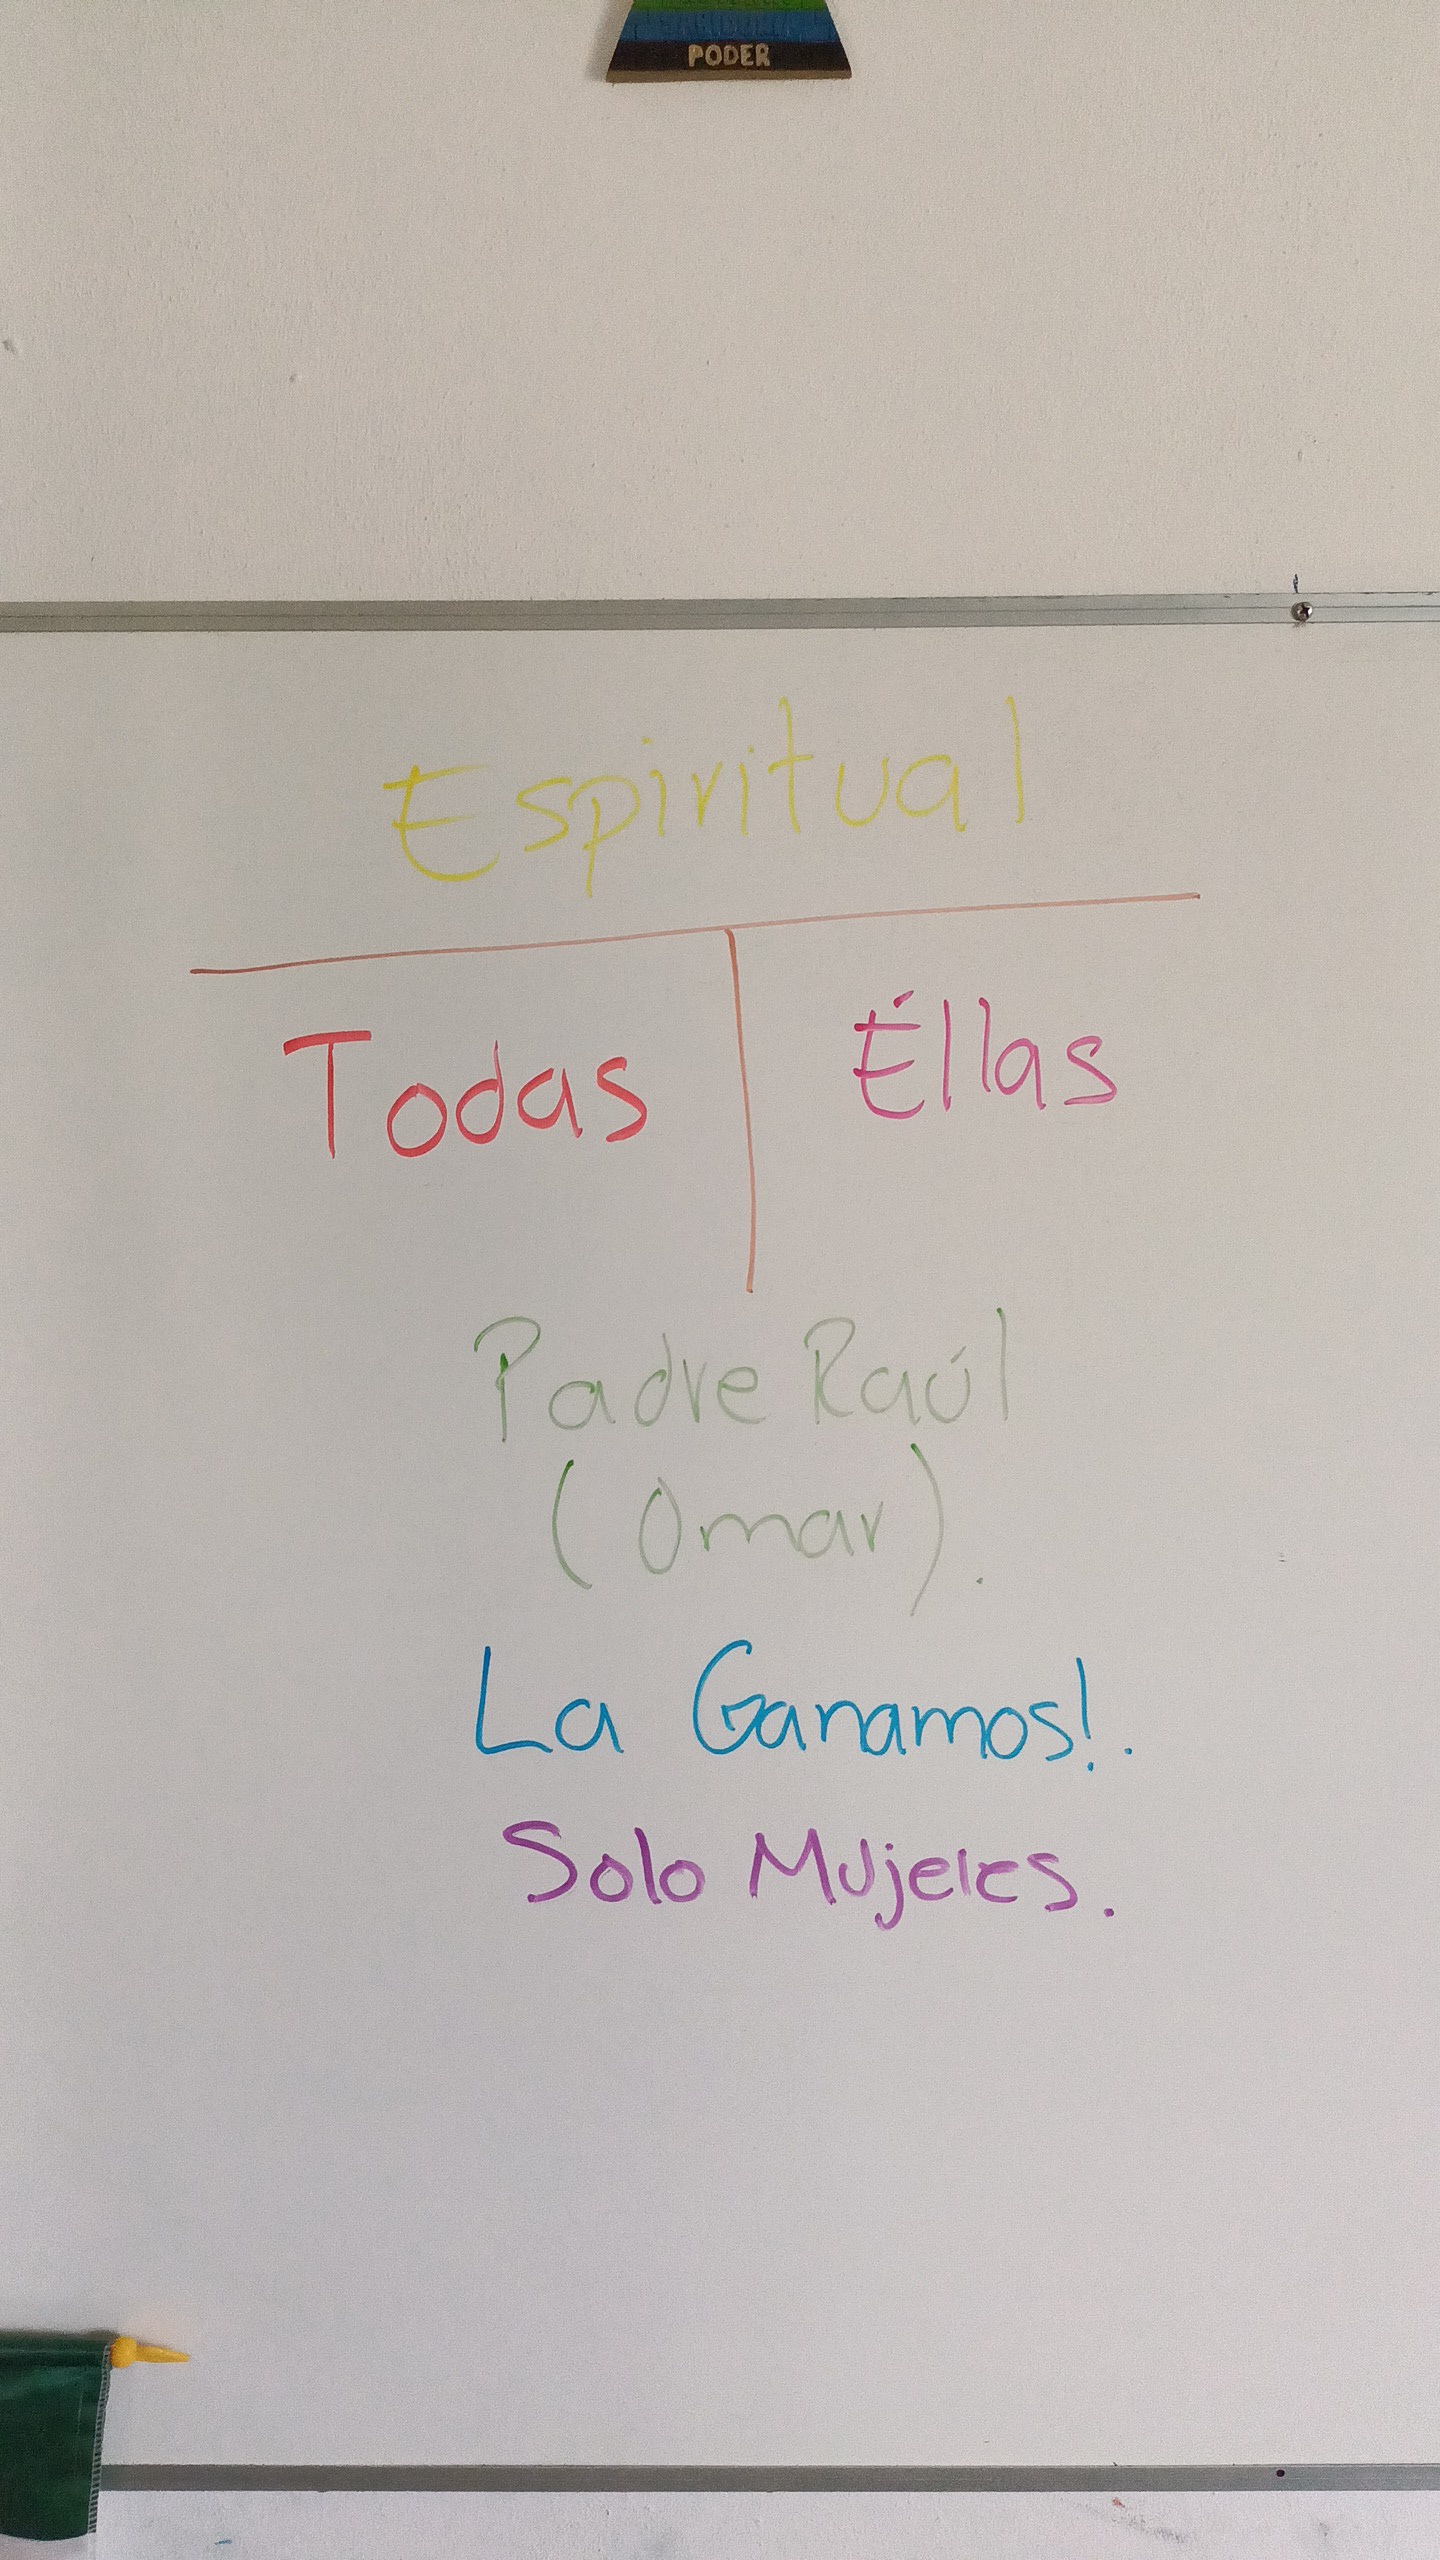 PODER
Espiritual
Todas Éllas
Padre Raúl
(Omar).
La Ganamos!.
Solo Mujeres.